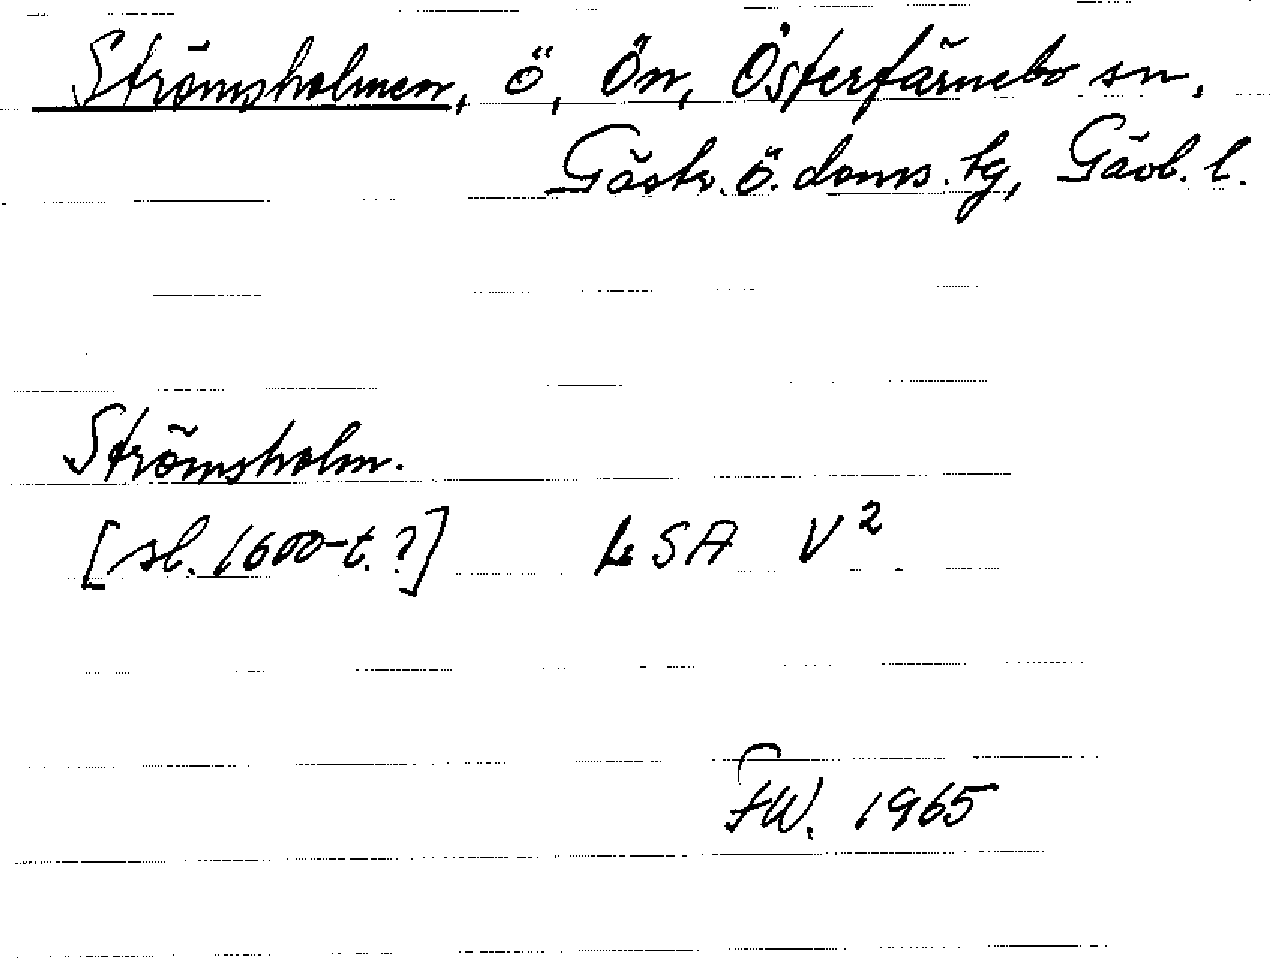 Strömsholmen, ö, Ön, Österfärnebo sn,
Gästr. ö. doms. tg, Gävl. l.
Strömsholm.
[sl. 1600-t.?] LSA V²
FW. 1965